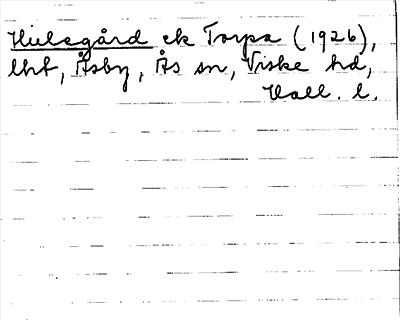 Hulegård ek Torpa (1926),
lht, Åsby, Ås sn, Viske hd,
Hall. l.